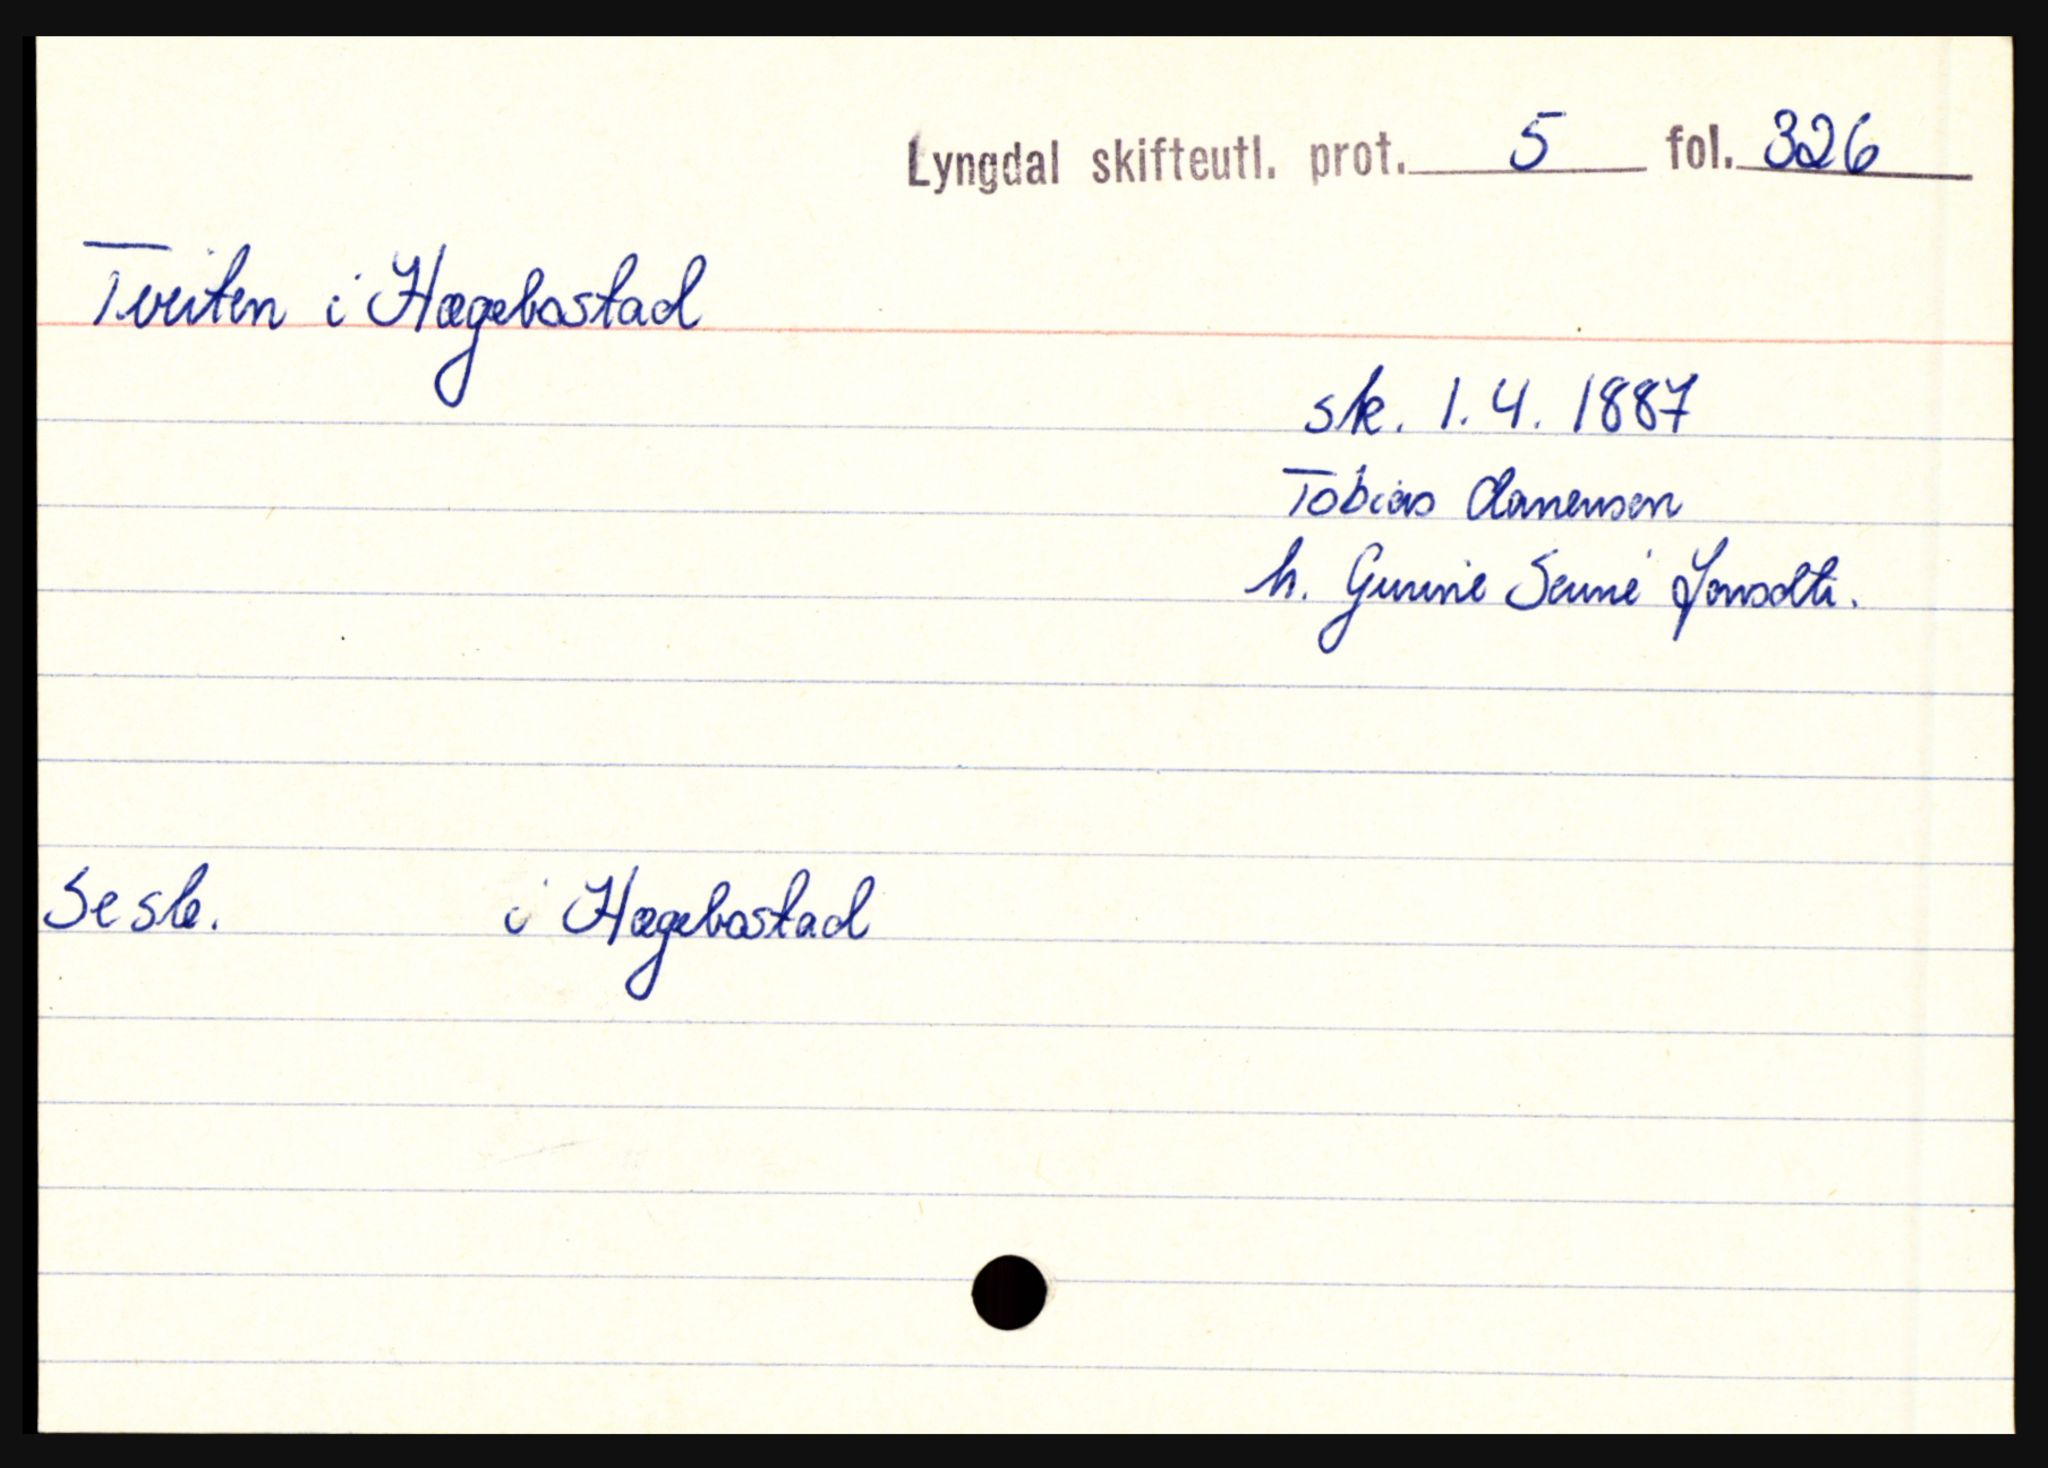 Lyngdal skifteutl. prot. 5 fol. 326
Tveiten i Hægebostad
sk. 1.4. 1887
Tobias Aanensen
h. Gunine Serine Jonsdtr.
Se sk. i Hægebostad